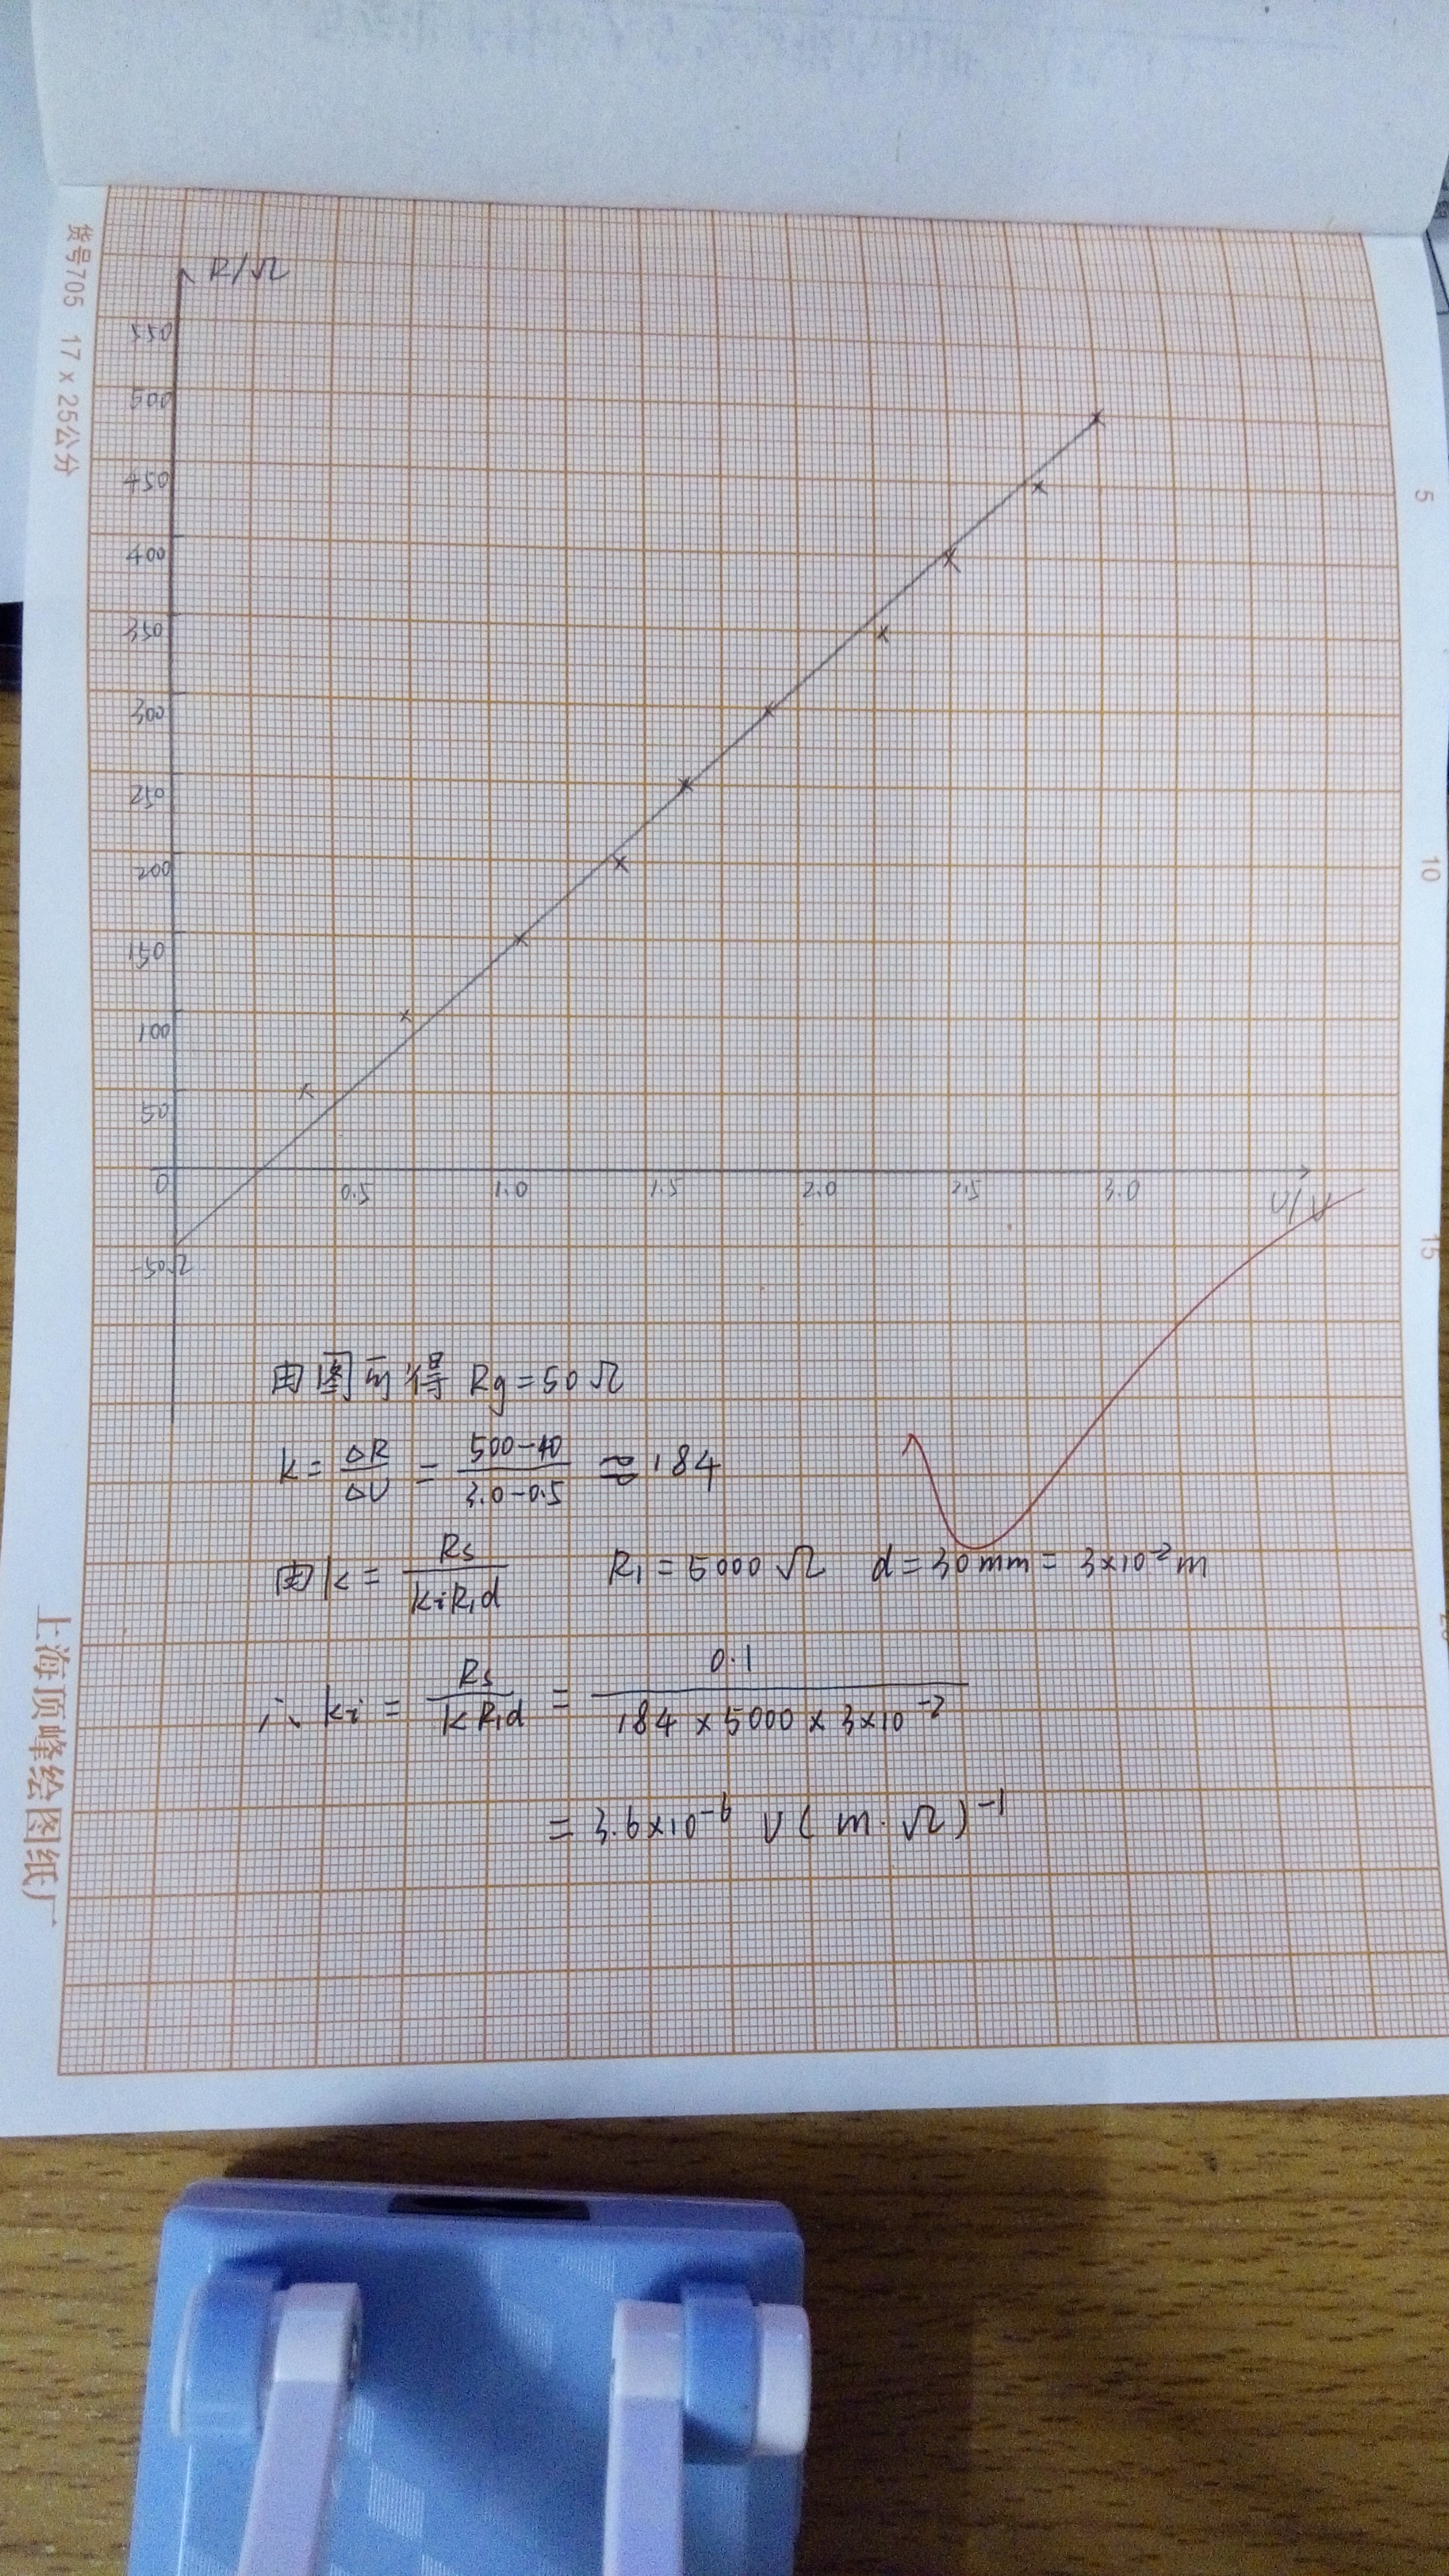 货号705 17×25公分
R/Ω
550
500
450
400
350
300
250
200
150
100
50
0
0.5 1.0 1.5 2.0 2.5 3.0
U/V
-50Ω
5
10
15
由图可得 Rg=50Ω
k = ΔR/ΔU = (500-40)/(3.0-0.5) ≈ 184
由k = Rs/(kiR₁d) R₁=5000Ω d=30mm=3×10⁻²m
∴ ki = Rs/(kR₁d) = 0.1/(184×5000×3×10⁻²)
= 3.6×10⁻⁶ V(m·Ω)⁻¹
上海顶峰绘图纸厂